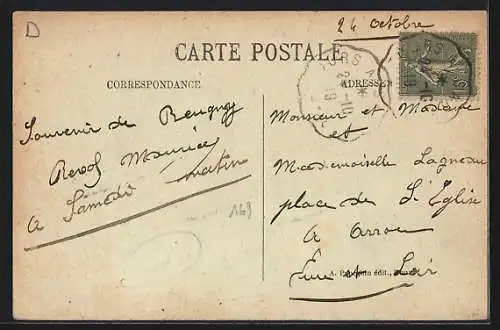 D
24 octobre
CARTE POSTALE
CORRESPONDANCE
ADRESSE
TOURS A
24-10
Souvenir de
Maurice
a Samedi matin
169
Monsieur et Madame
et
Mademoiselle Lagneau
place de l'Eglise
a Arrou
Eure et Loir
A. édit.,